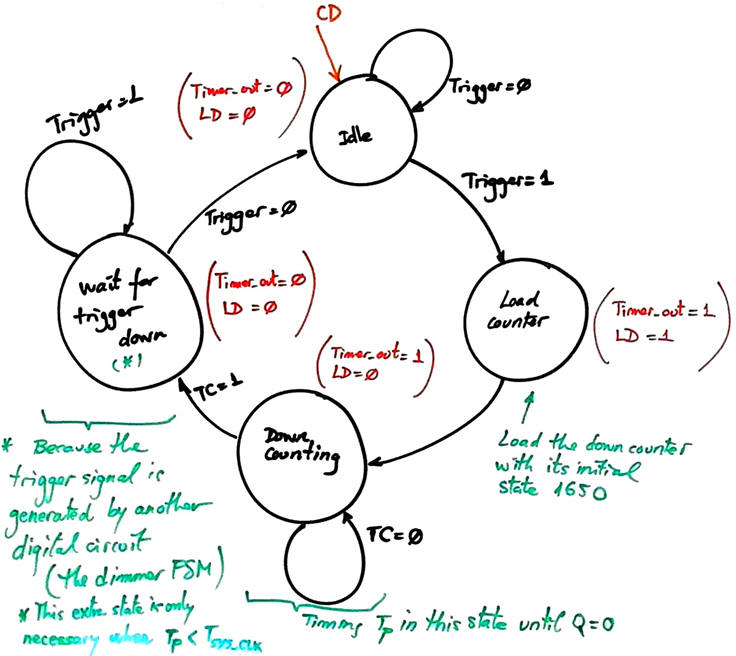 CD
Trigger=1
(Timer_out=Ø
LD=Ø)
Trigger=Ø
Idle
Trigger=1
Trigger=Ø
wait for
trigger
down
(*)
(Timer_out=Ø
LD=Ø)
Load
counter
(Timer_out=1
LD=1)
(Timer_out=1
LD=Ø)
TC=1
Down
Counting
TC=Ø
Load the down counter
with its initial
state 1650
* Because the
trigger signal is
generated by another
digital circuit
(the dimmer FSM)
* This extra state is only
necessary when Tp < TSYS_CLK
Timing Tp in this state until Q=0